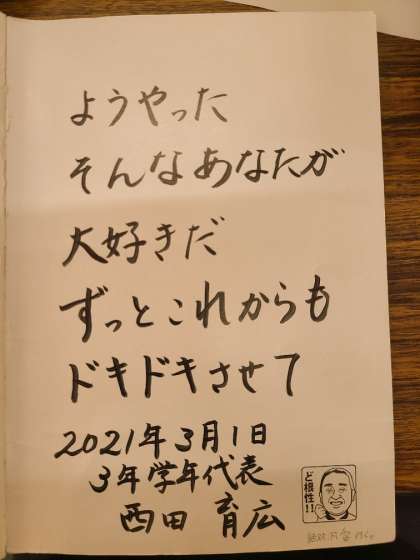 ようやった
そんなあなたが
大好きだ
ずっとこれからも
ドキドキさせて
2021年3月1日
3年学年代表
西田 育広
ど根性!!